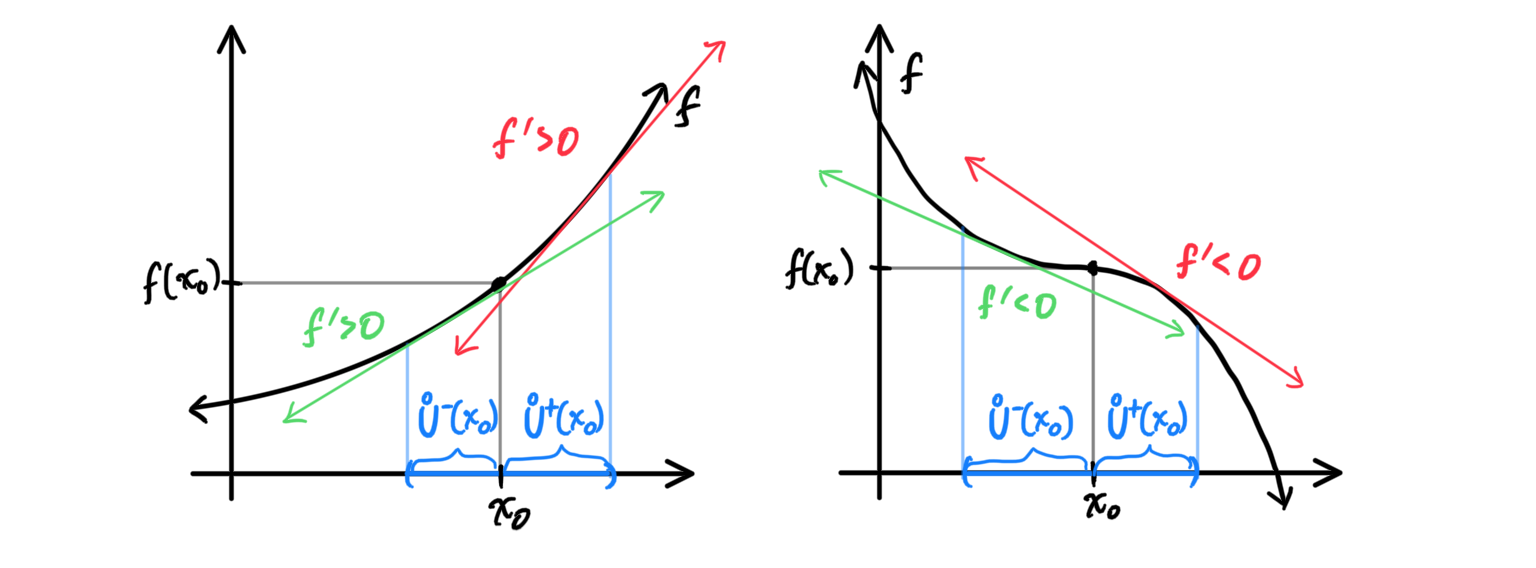 f
f'>0
f(x₀)
f'>0
Ů⁻(x₀) Ů⁺(x₀)
x₀
f
f'<0
f(x₀)
f'<0
Ů⁻(x₀) Ů⁺(x₀)
x₀